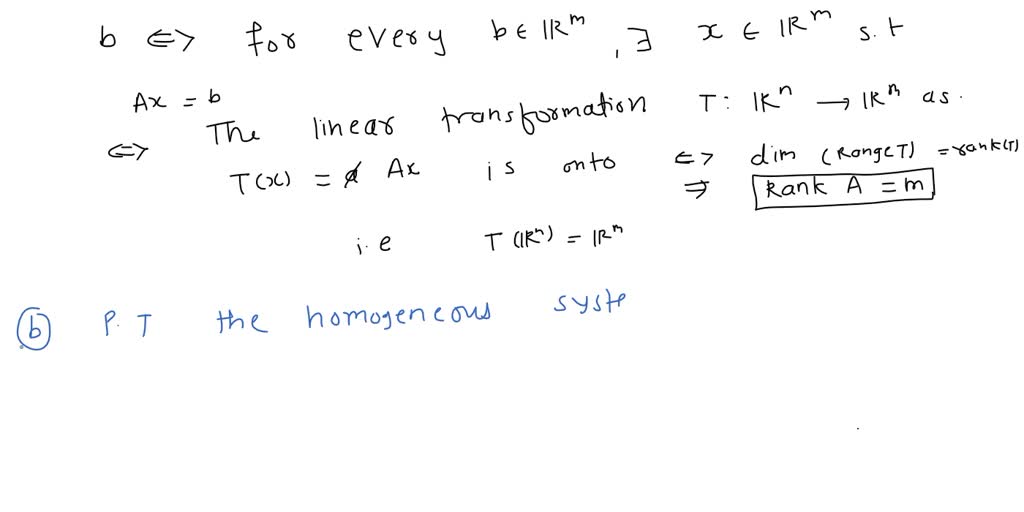 b ⇔ for every b ∈ ℝᵐ, ∃ x ∈ ℝᵐ s.t
Ax = b
⇔ The linear transformation T: ℝⁿ → ℝᵐ as.
T(x) = Ax is onto ⇔ dim (Range T) = rank(T)
⇒ Rank A = m
i.e T(ℝⁿ) = ℝᵐ
(b) P.T the homogeneous syste